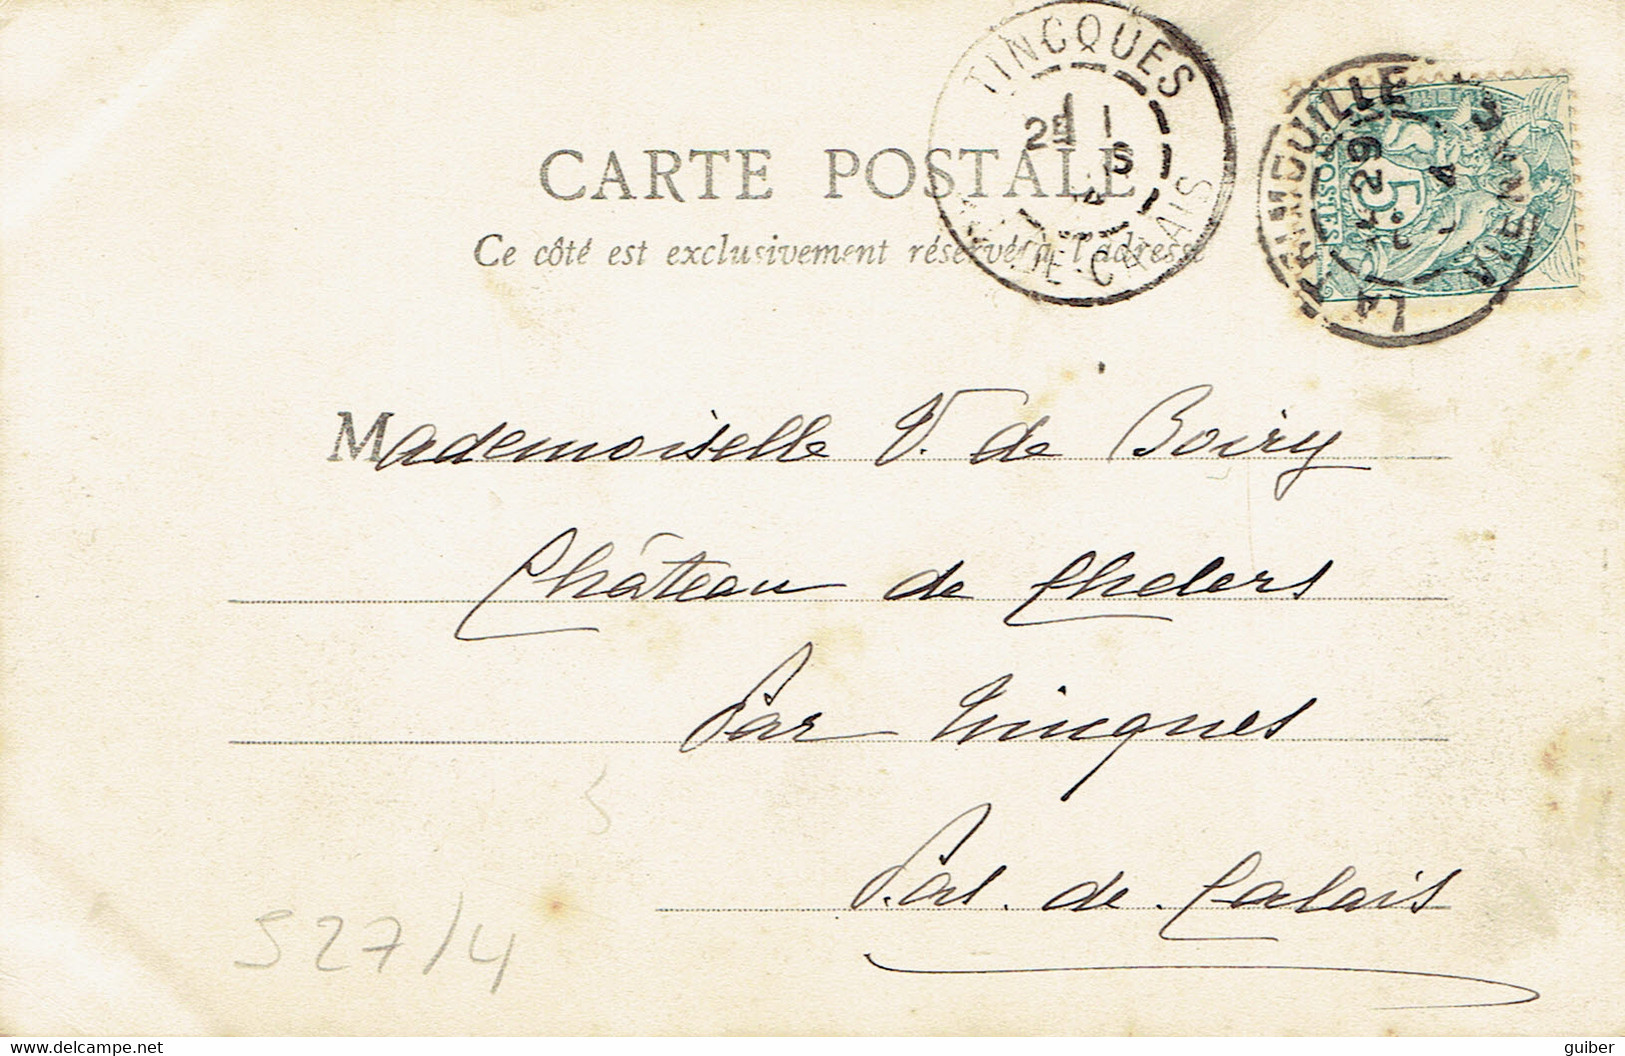 TINCQUES
2E 1
S
PAS-DE-CALAIS
LA TRIMOUILLE
29
4
VIENNE
POSTES
5
CARTE POSTALE
Ce côté est exclusivement réservé à l'adresse
Mademoiselle V. de Boiry
Château de Chelers
Par Tincques
Pas. de. Calais
S27/4
www.delcampe.net
guiber